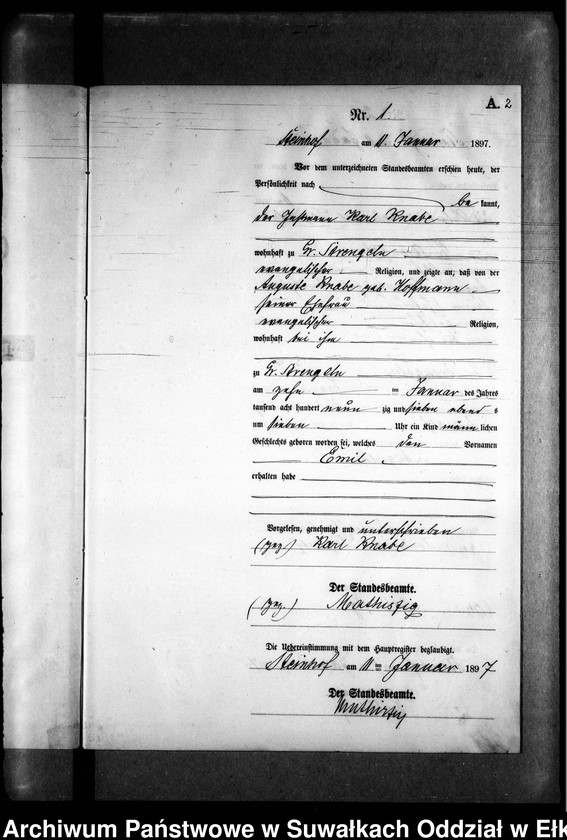 A. 2
Nr. 1.
Steinhof am 11. Januar 1897.
Vor dem unterzeichneten Standesbeamten erschien heute, der
Persönlichkeit nach
be kannt,
der Instmann Karl Knabe
wohnhaft zu Gr. Strengeln
evangelischer Religion, und zeigte an, daß von der
Auguste Knabe geb. Hoffmann
seiner Ehefrau
evangelischer Religion,
wohnhaft bei ihm
zu Gr. Strengeln
am zehn ten Januar des Jahres
tausend acht hundert neun zig und sieben abends
um sieben Uhr ein Kind männ lichen
Geschlechts geboren worden sei, welches den Vornamen
Emil
erhalten habe
Vorgelesen, genehmigt und unterschrieben
(gez.) Karl Knabe
Der Standesbeamte.
(gez.) Mathiszig
Die Uebereinstimmung mit dem Hauptregister beglaubigt.
Steinhof am 11ten Januar 1897
Der Standesbeamte.
Mathiszig
Archiwum Państwowe w Suwałkach Oddział w Ełk